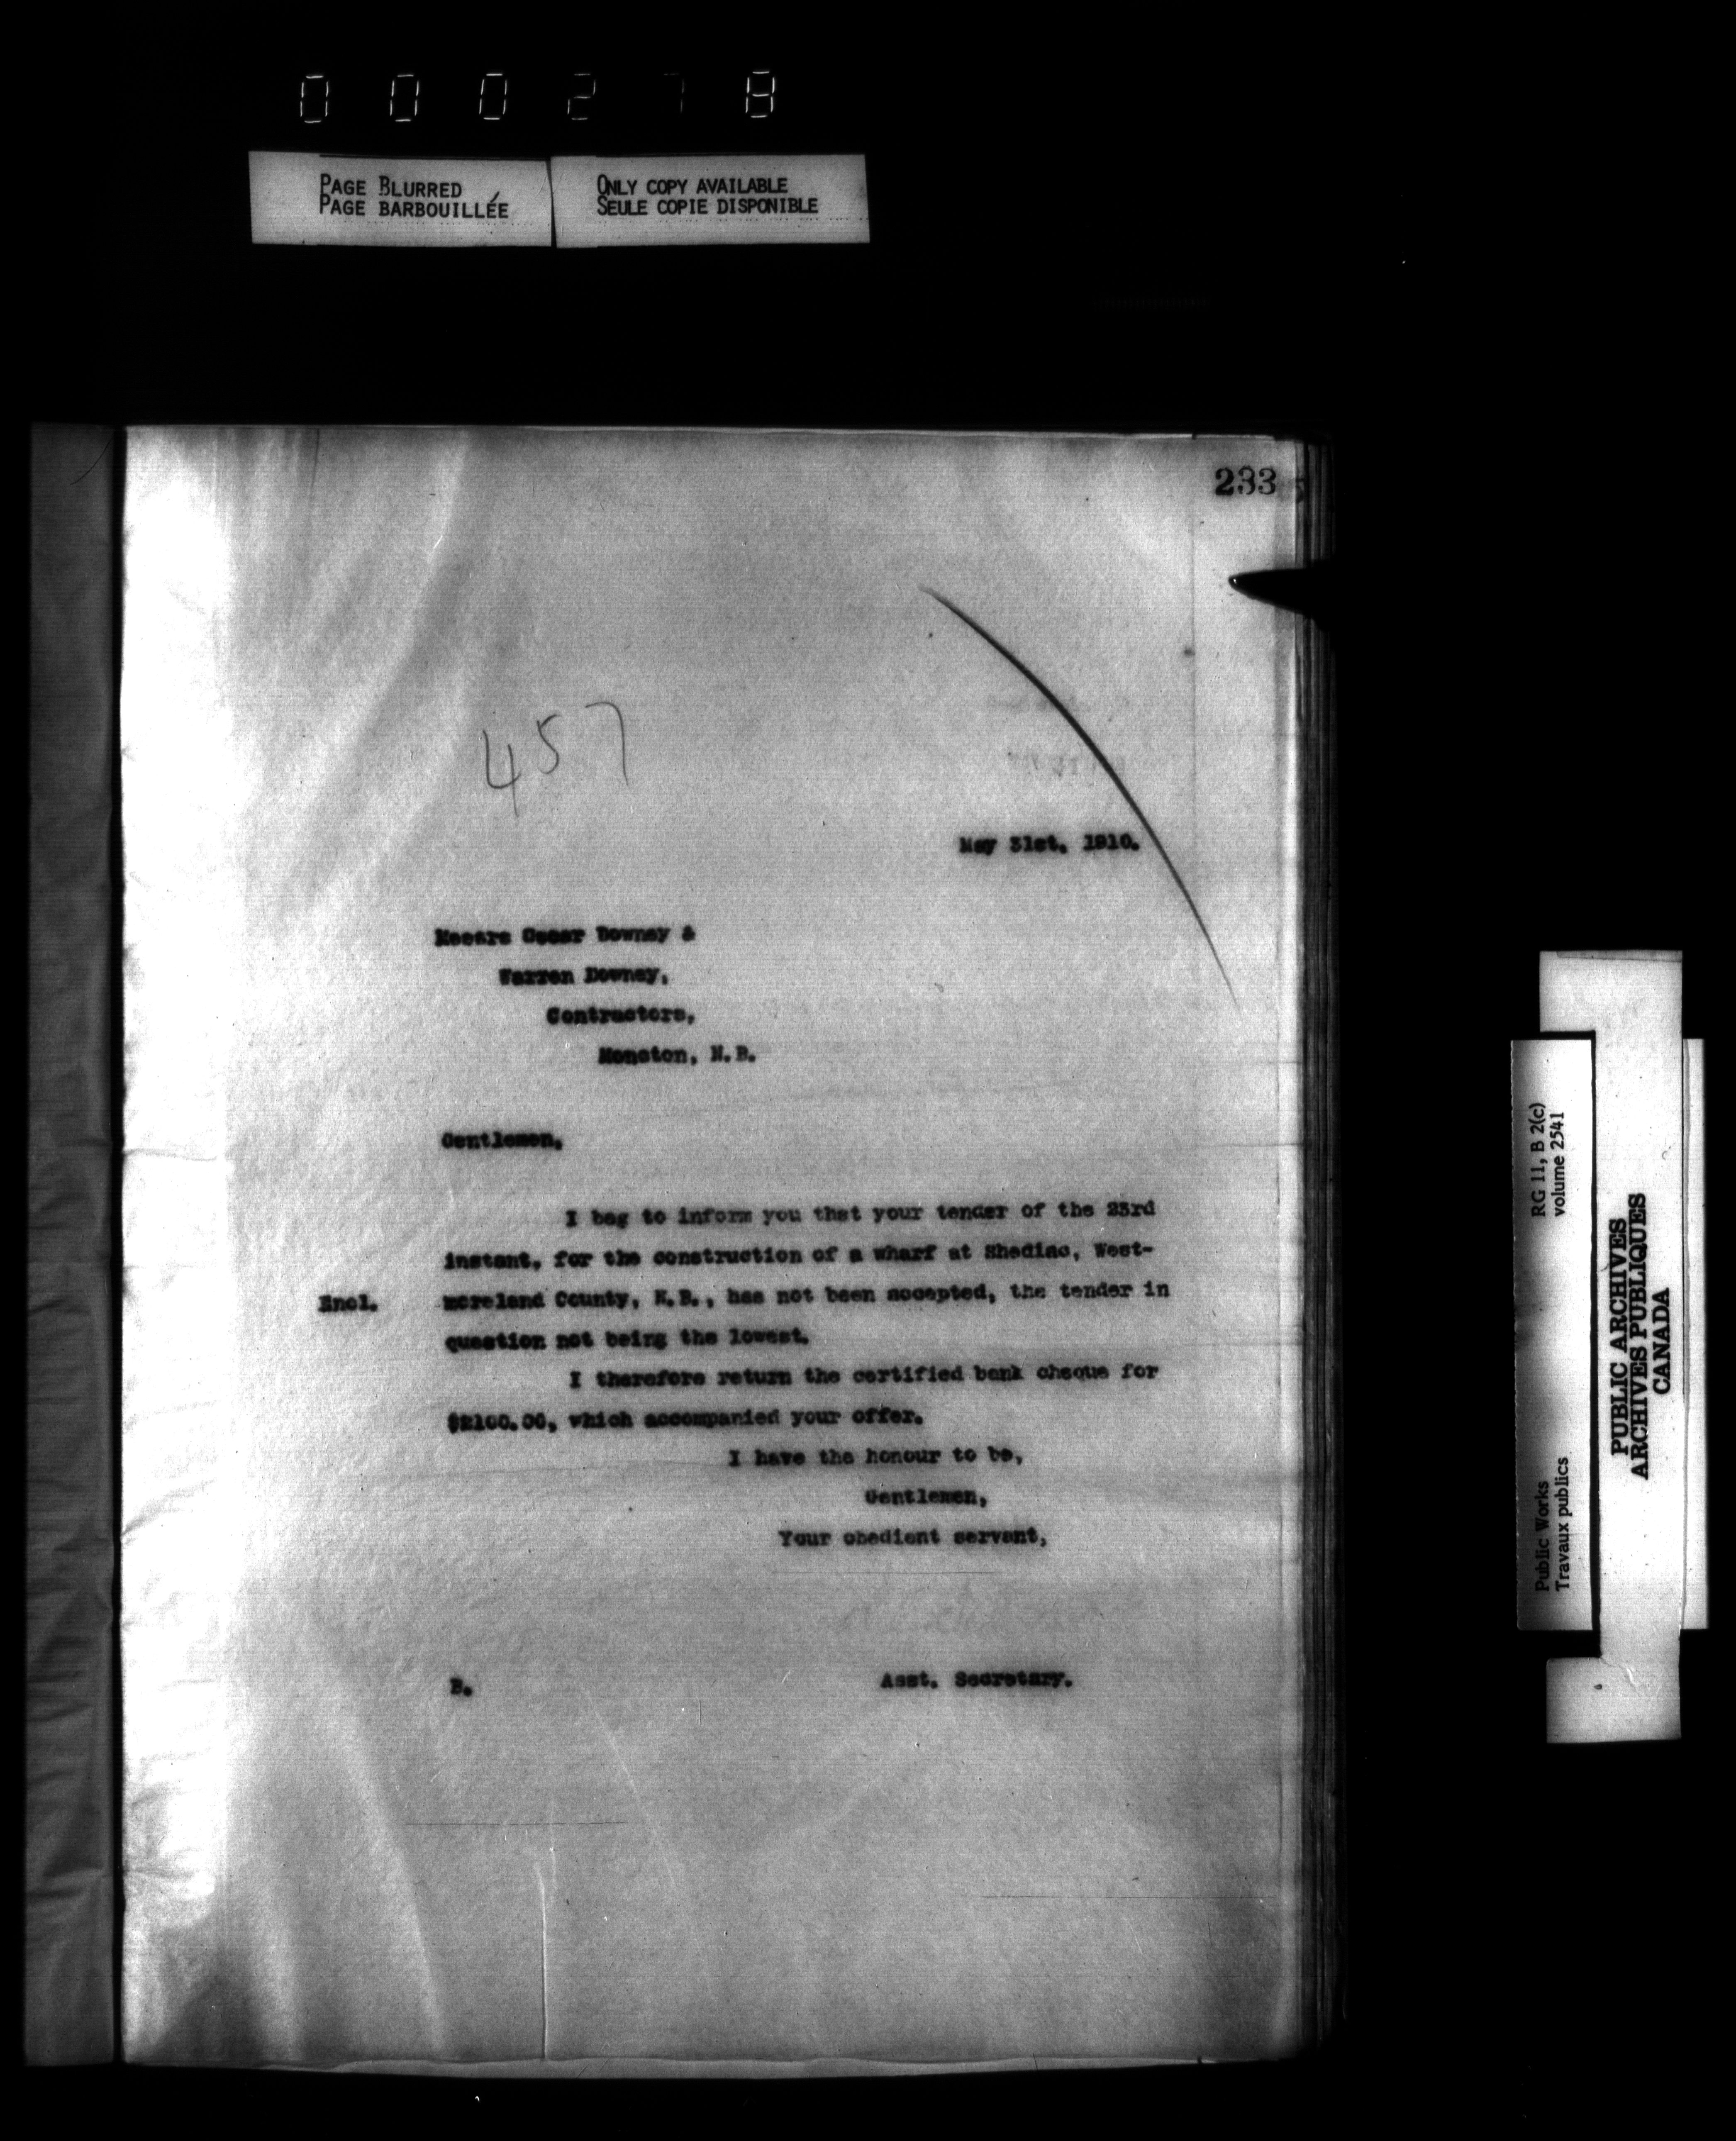 000278
PAGE BLURRED
PAGE BARBOUILLÉE
ONLY COPY AVAILABLE
SEULE COPIE DISPONIBLE
233
457
May 31st, 1910.
Messrs Oscar Downey &
Warren Downey,
Contractors,
Moncton, N.B.
Gentlemen,
I beg to inform you that your tender of the 23rd
instant, for the construction of a wharf at Shediac, West-
Encl.
moreland County, N.B., has not been accepted, the tender in
question not being the lowest.
I therefore return the certified bank cheque for
$2100.00, which accompanied your offer.
I have the honour to be,
Gentlemen,
Your obedient servant,
Asst. Secretary.
B.
RG 11, B 2(c)
volume 2541
Public Works
Travaux publics
PUBLIC ARCHIVES
ARCHIVES PUBLIQUES
CANADA